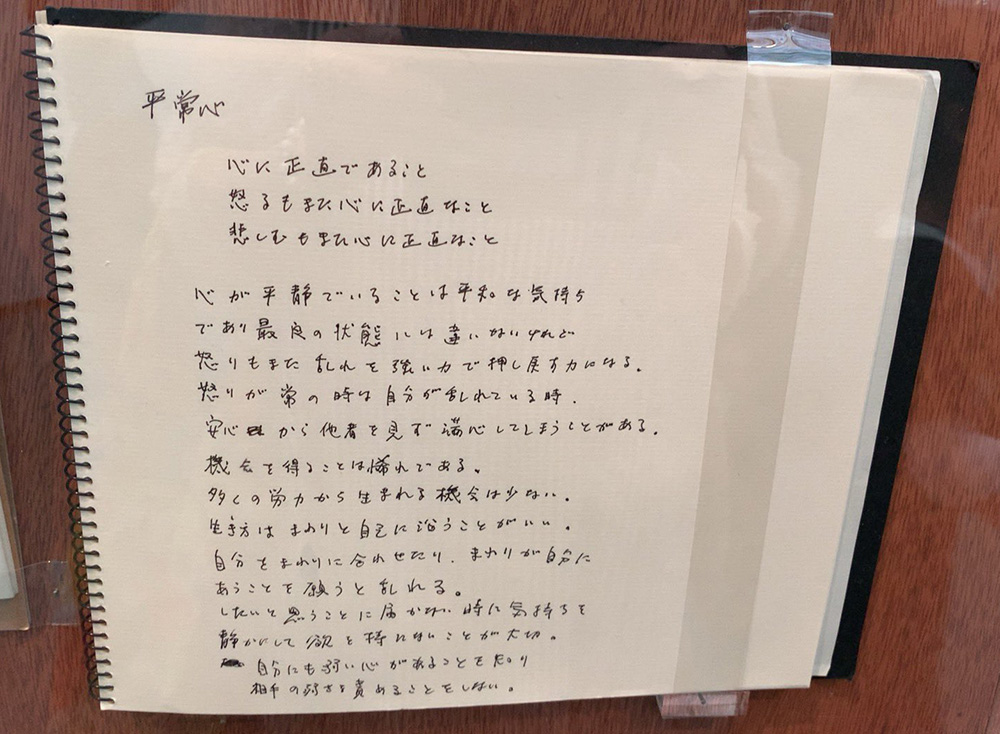 平常心
心に正直であること
怒るもまた心に正直なこと
悲しむもまた心に正直なこと
心が平静でいることは平和な気持ち
であり最良の状態には違いないけれど
怒りもまた乱れを強い力で押し戻す力になる。
怒りが常の時は自分が乱れている時.
安心から他者を見ず慢心してしまうことがある。
機会を得ることは稀れである。
多くの労力から生まれる機会は少ない。
生き方はまわりと自己に沿うことがいい。
自分をまわりに合わせたり、まわりが自分に
あうことを願うと乱れる。
したいと思うことに届かない時に気持ちを
静かにして欲を持たないことが大切。
自分にも弱い心があることを知り
相手の弱さを責めることをしない。